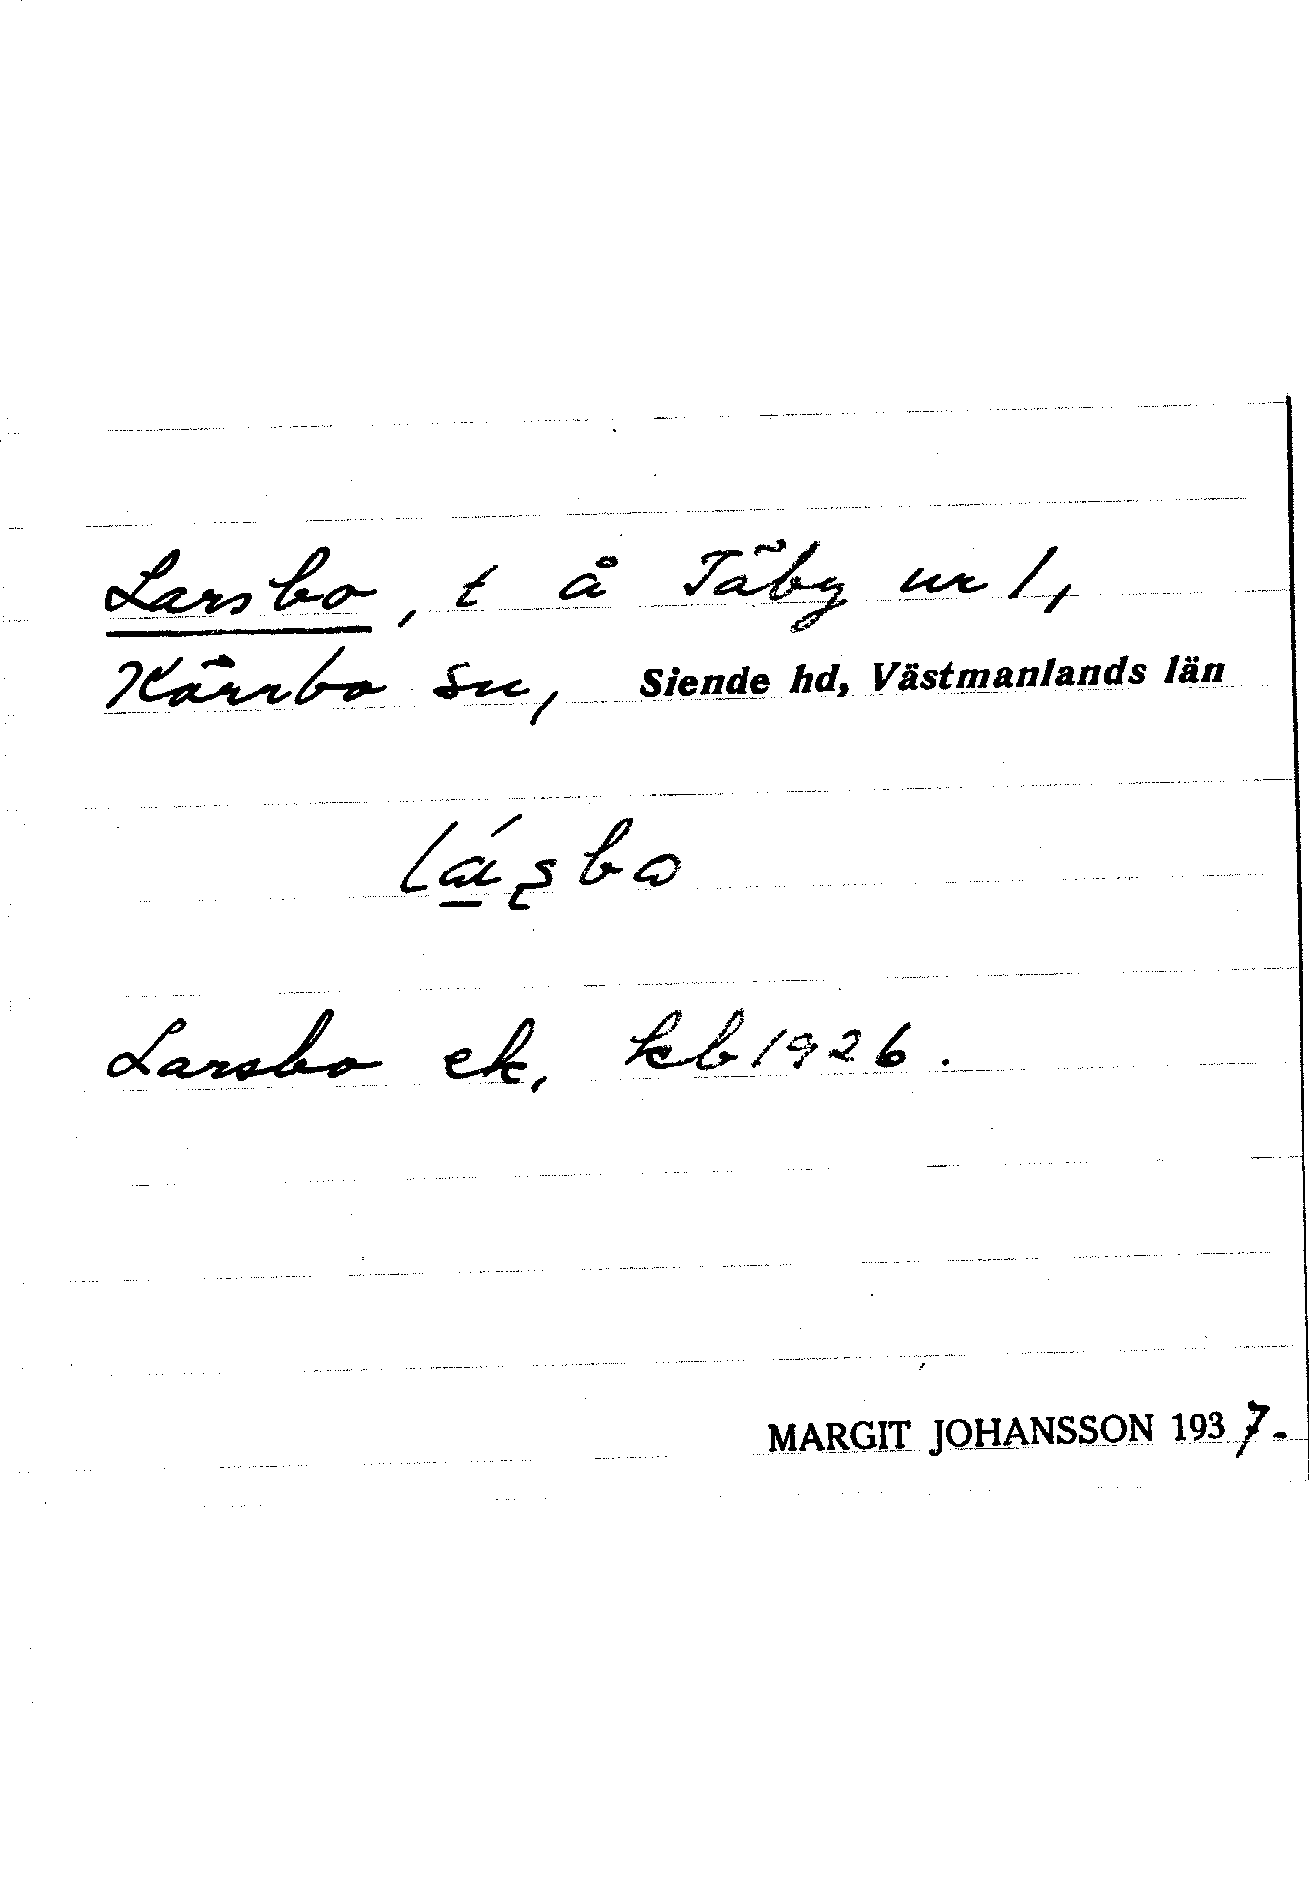 Larsbo, t å Täby nr 1,
Kärrbo sn, Siende hd, Västmanlands län
lá̱ʂbo
Larsbo ek, kb 1926.
MARGIT JOHANSSON 1937.